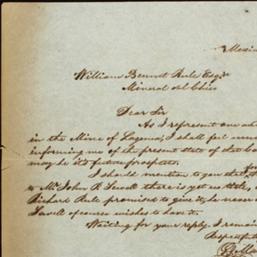 Mexi
William Bennett Rule Esqr.
Mineral del Chico
Dear Sir
As I represent one
in the Mine of I shall feel
informing me of the present state of the
may be its future
I should mention to you
to Mr. John R. there is yet no
Richard Rule promised to give it, he never
of course wishes to have it.
Waiting for your reply. I remain
Respectfu